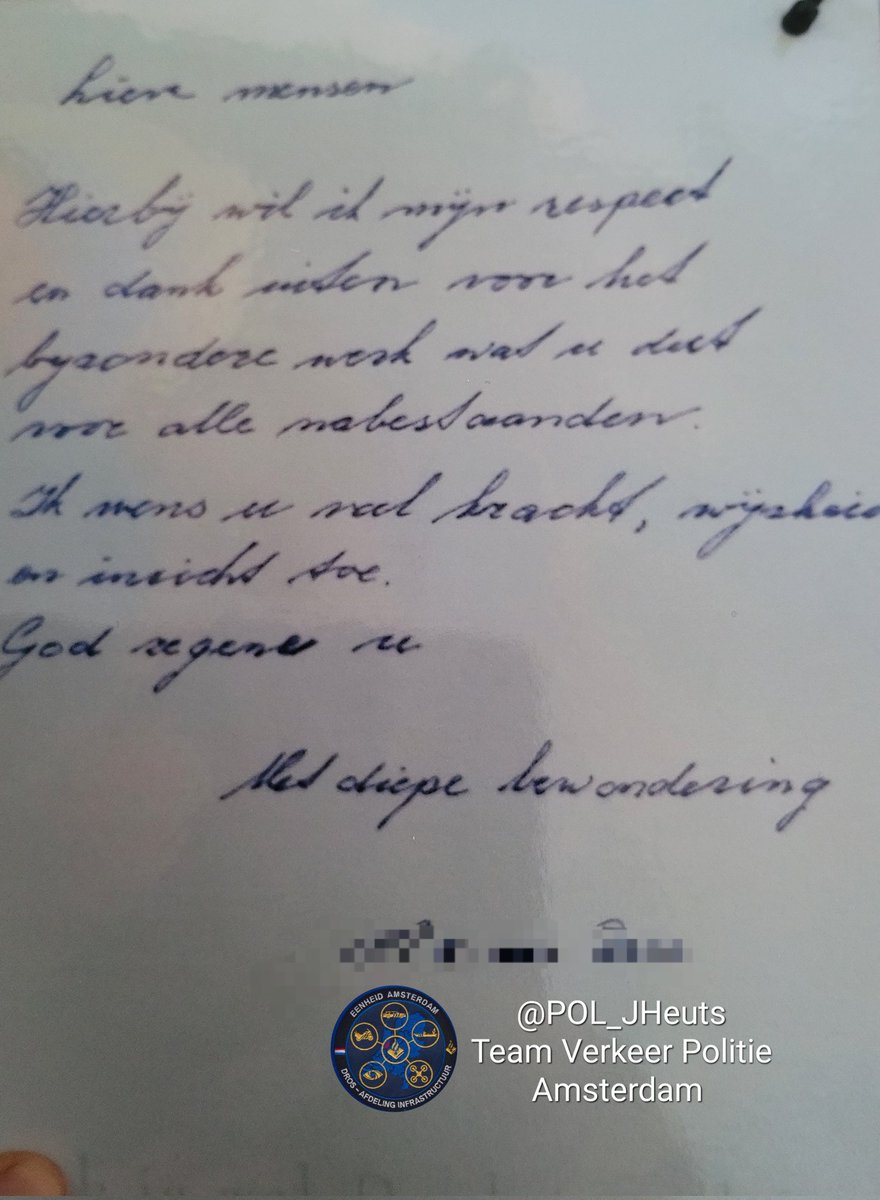 Lieve mensen
Hierbij wil ik mijn respect
en dank uiten voor het
byzondere werk wat u doet
voor alle nabestaanden.
Ik wens u veel kracht, wijsheid
en inzicht toe.
God zegene u
Met diepe bewondering
EENHEID AMSTERDAM
DROS - AFDELING INFRASTRUCTUUR
@POL_JHeuts
Team Verkeer Politie
Amsterdam